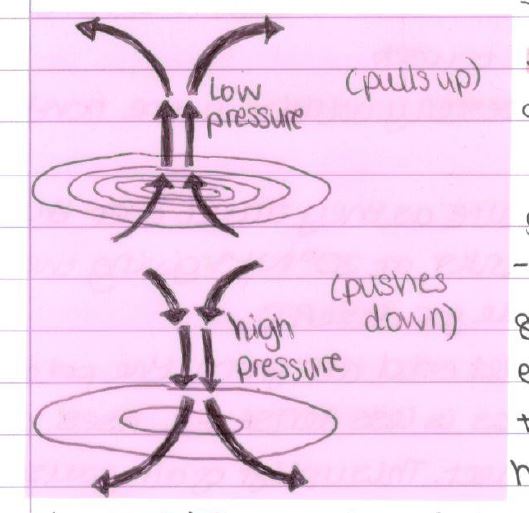 low
pressure
(pulls up)
high
pressure
(pushes
down)